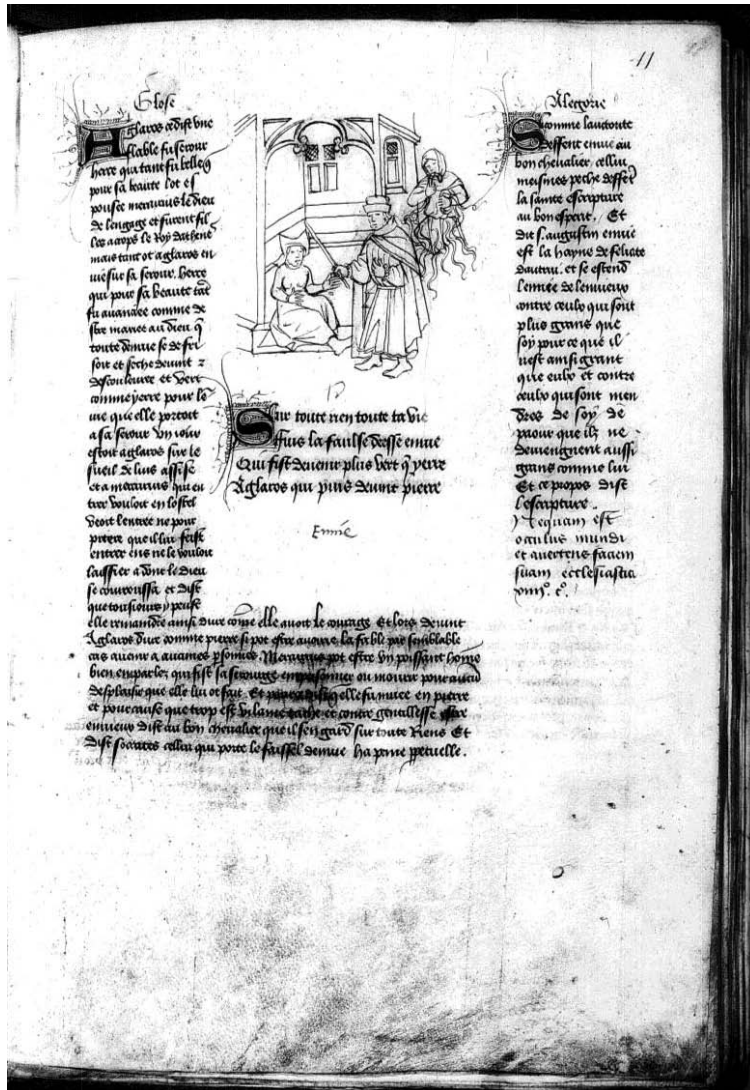 11
Glose
Aglaros ce dist vne
fable fu serour
herce qui tant fu belle q̄
pour sa beaute lot es
pousee mercurius le dieu
de lengage et furent fil
les acops le Roy dathene
mais tant ot aglaros en
uie sur sa serour herce
qui pour sa beaute tāt
fu auancee comme de
stre mariee au dieu q̄
toute denuie se de fri
soit et seche deuint z
descoulouree et vert
comme yerre pour lē
uie que elle portoit
a sa serour vn iour
estoit aglaros sur le
sueil de luis assise
et a mercurius qui en
trer vouloit en lostel
veoit lentree ne pour
priere que il lui feist
entrer ens ne le vouloit
laissier adont le dieu
se courroussa et dist
que tousiours y peust
elle remaindre ainsi dure cōme elle auoit le courage Et lors deuint
Aglaros dure comme pierre si pot estre aueree la fable par semblable
cas auenir a aucunes psonnes. Mercurius pot estre vn poissant home
bien emparle qui fist sa serourge emprisonner ou mourir pour aucū
desplaisir que elle lui ot fait. Et elle fu muee en pierre
et pour cause que trop est vilaine tache et contre gentillesse estre
enuieux dist au bon cheualier que il sen gard sur toute Riens Et
dist socrates cellui qui porte le faissel denuie ha paine ppetuelle.
Sur toute rien toute ta vie
ffuis la faulse deesse enuie
Qui fist deuenir plus vert q̄ yerre
Aglaros qui puis deuint pierre
Enuie
Alegorie
Comme lauctorite
deffent enuie au
bon cheualier cellui
meismes peche deffēt
la sainte escripture
au bon esperit. Et
dit s. augustin enuie
est la hayne de felicite
dautrui. et se estend
lenuie de lenuieux
contre ceulx qui sont
plus grans que
soy pour ce que il
nest ainsi grant
que eulx et contre
ceulx qui sont men
dres de soy de
paour que ilz ne
deuiengnent aussi
grans comme lui
Et ce propos dist
lescripture.
Nequam est
occulus inuidi
et auertens faciem
suam ecclesiastici
xiiij°. c°.